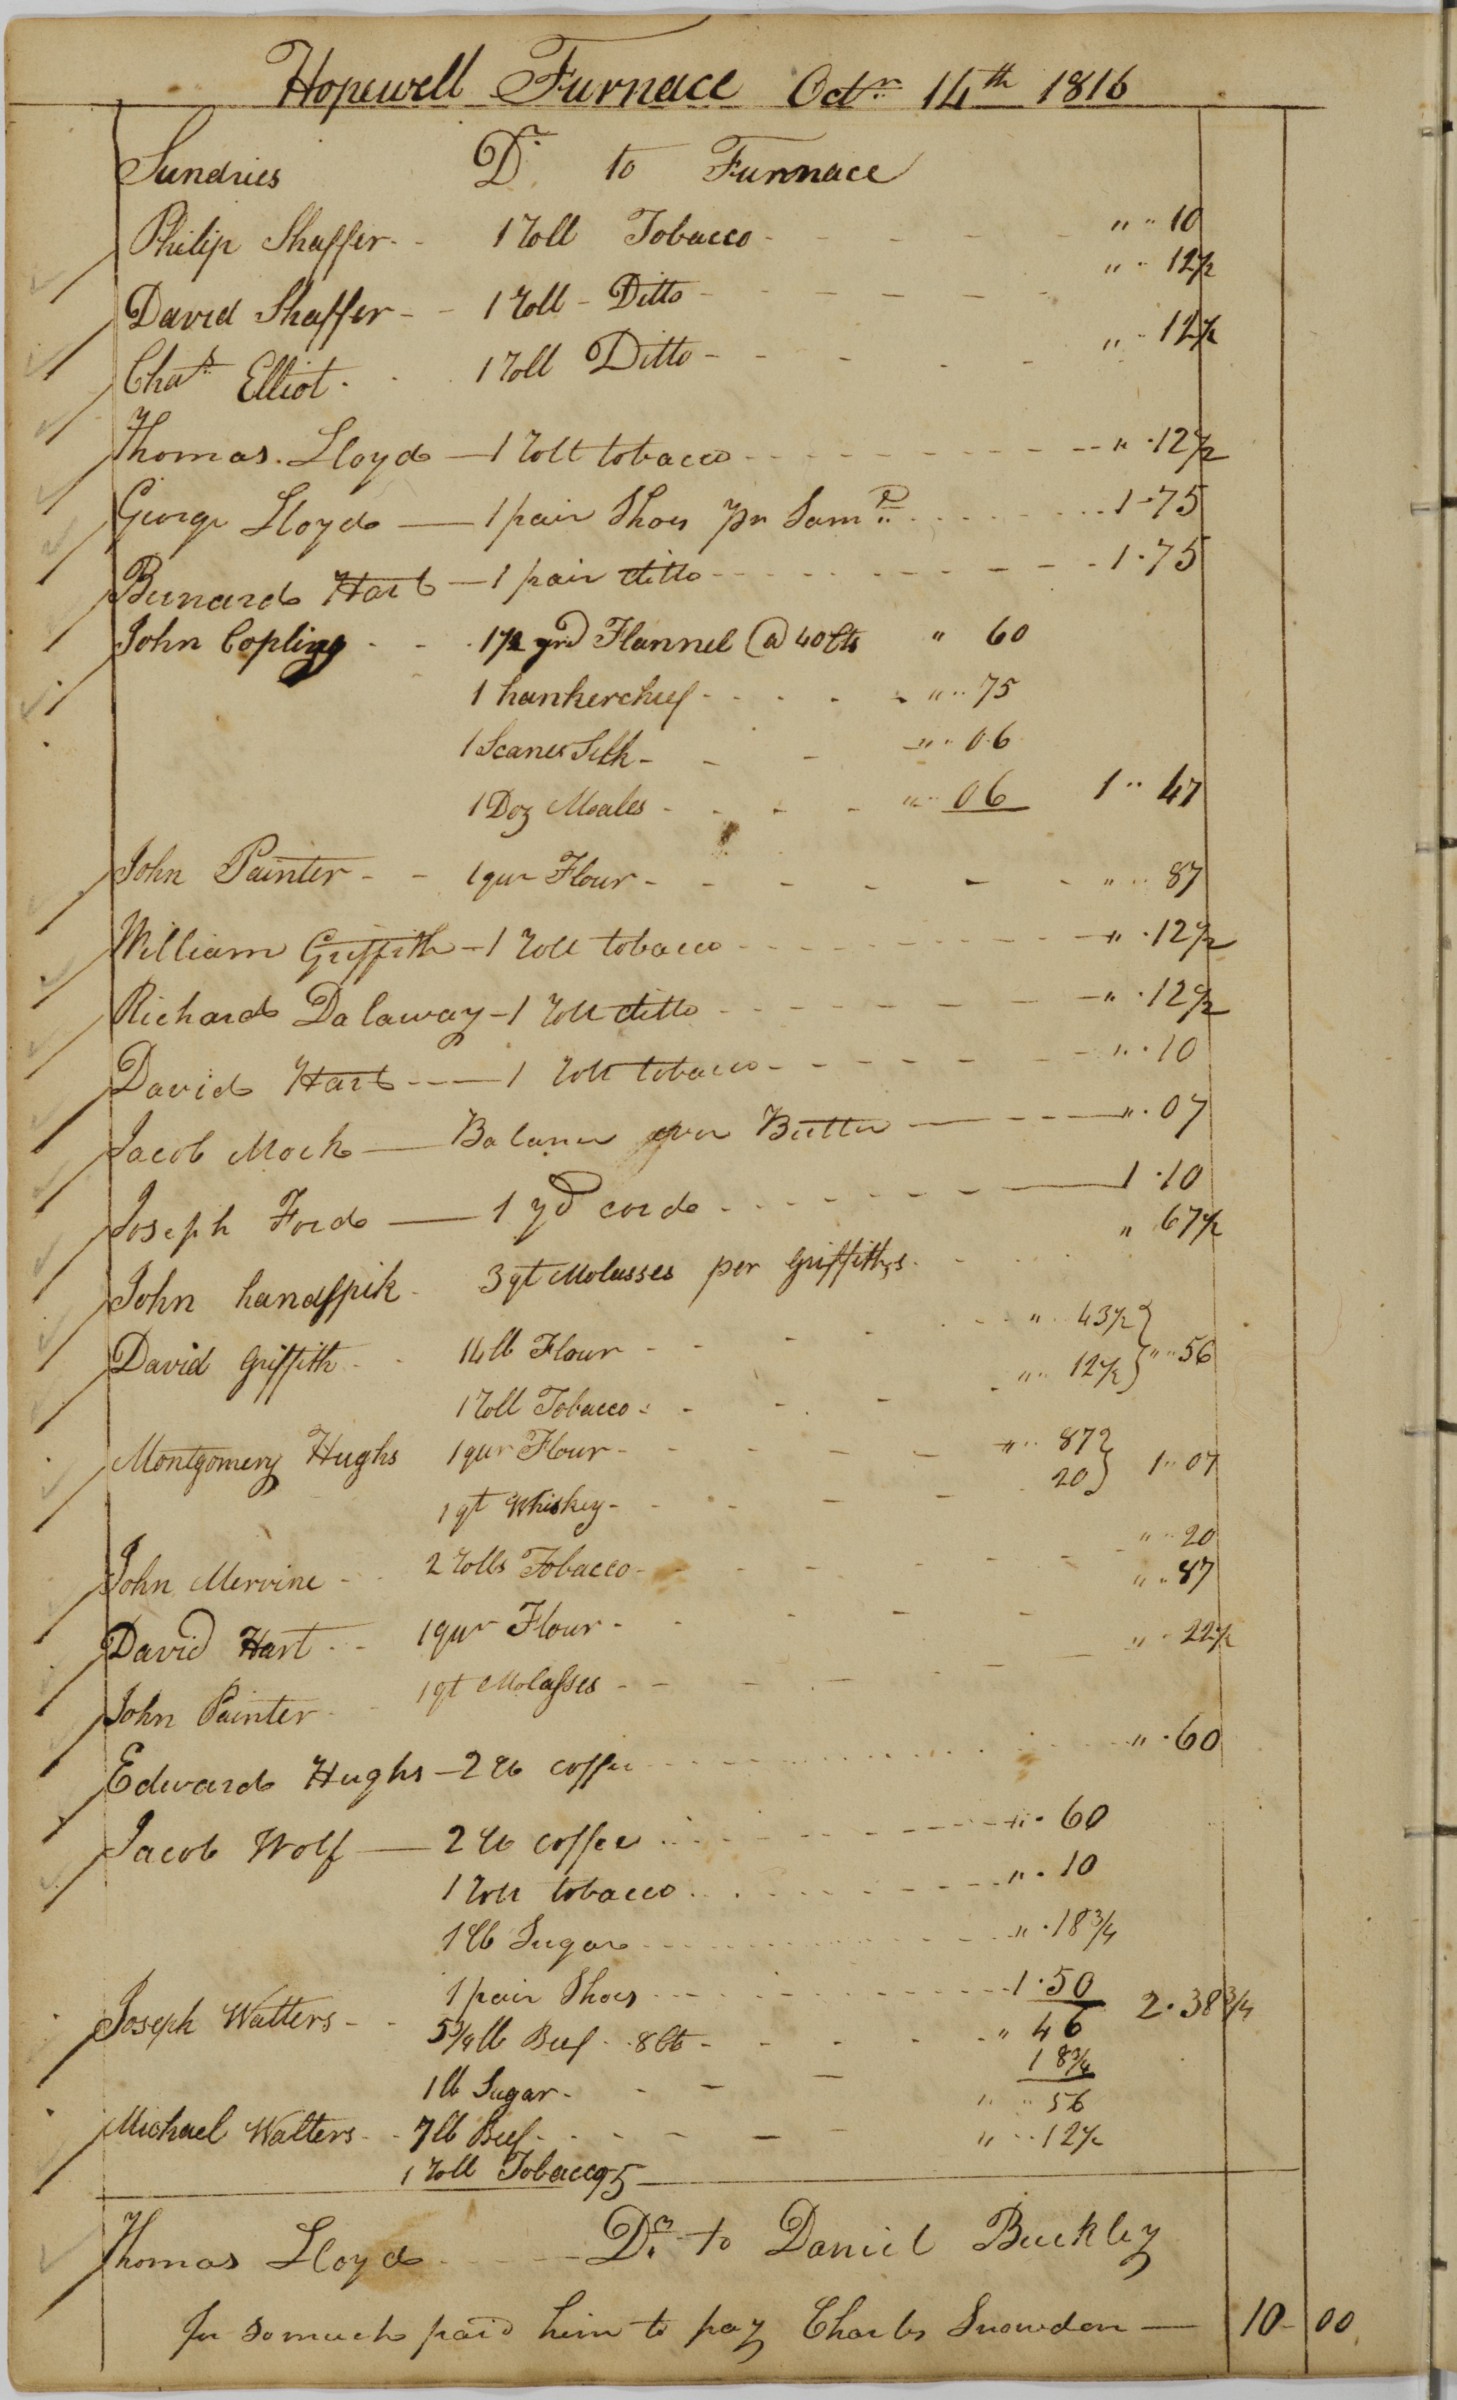 Hopewell Furnace Octr 14th 1816
Sundries Dr. to Furnace
Philip Shaffer - - 1 roll Tobacco - - - - - " " 10
David Shaffer - - 1 roll - Ditto - - - - - " " 12½
Chas Elliot. - 1 roll Ditto - - - - - " " 12½
Thomas. Lloyd — 1 roll tobacco - - - - - " 12½
George Lloyd — 1 pair Shoes pr Sam - - - - - 1.75
Bernard Hart — 1 pair ditto - - - - - 1.75
John Copling - - 1½ yrd Flannel @ 40 Cts " 60
1 hankerchief - - - - " " 75
1 Scane Silk - - - " " 06
1 Doz Moales - - - - " " 06 1 " 47
John Painter - - 1 qur Flour - - - - - " " 87
William Griffith - 1 roll tobacco - - - - - " 12½
Richard Dalaway - 1 roll ditto - - - - - " 12½
David Hart - - 1 roll tobacco - - - - - " 10
Jacob Mock — Balance over Butter — - - - " 07
Joseph Ford — 1 yd cord - - - - - 1.10
John handspik - 3 qt Molasses per Griffiths - - " 67½
David Griffith - - 14 lb Flour - - - - - " 43½ }
1 roll Tobacco - - - - " 12½ } " " 56
Montgomery Hughs 1 qur Flour - - - - - " " 87 }
1 qt Whiskey - - - - 20 } 1 " 07
John Mervine - - 2 rolls Tobacco - - - - - " " 20
David Hart - - 1 qur Flour - - - - - " " 87
John Painter - - 1 qt Molasses - - - - - " " 22½
Edward Hughs - 2 lb coffee - - - - - " 60
Jacob Wolf — 2 lb coffee - - - - - " 60
1 roll tobacco - - - - - " 10
1 lb Sugar - - - - - " 18¾
1 pair Shoes - - - - - 1.50 2.38¾
Joseph Watters - - 5¾ lb Beef - 8 Cts - - - - " 46
1 lb Sugar - - - - 18¾
Michael Watters - - 7 lb Beef - - - - - " " 56
1 roll Tobacco 95 " " 12½
Thomas Lloyd - - - Dr. to Daniel Buckley
for so much paid him to pay Charles Snowden — 10 - 00